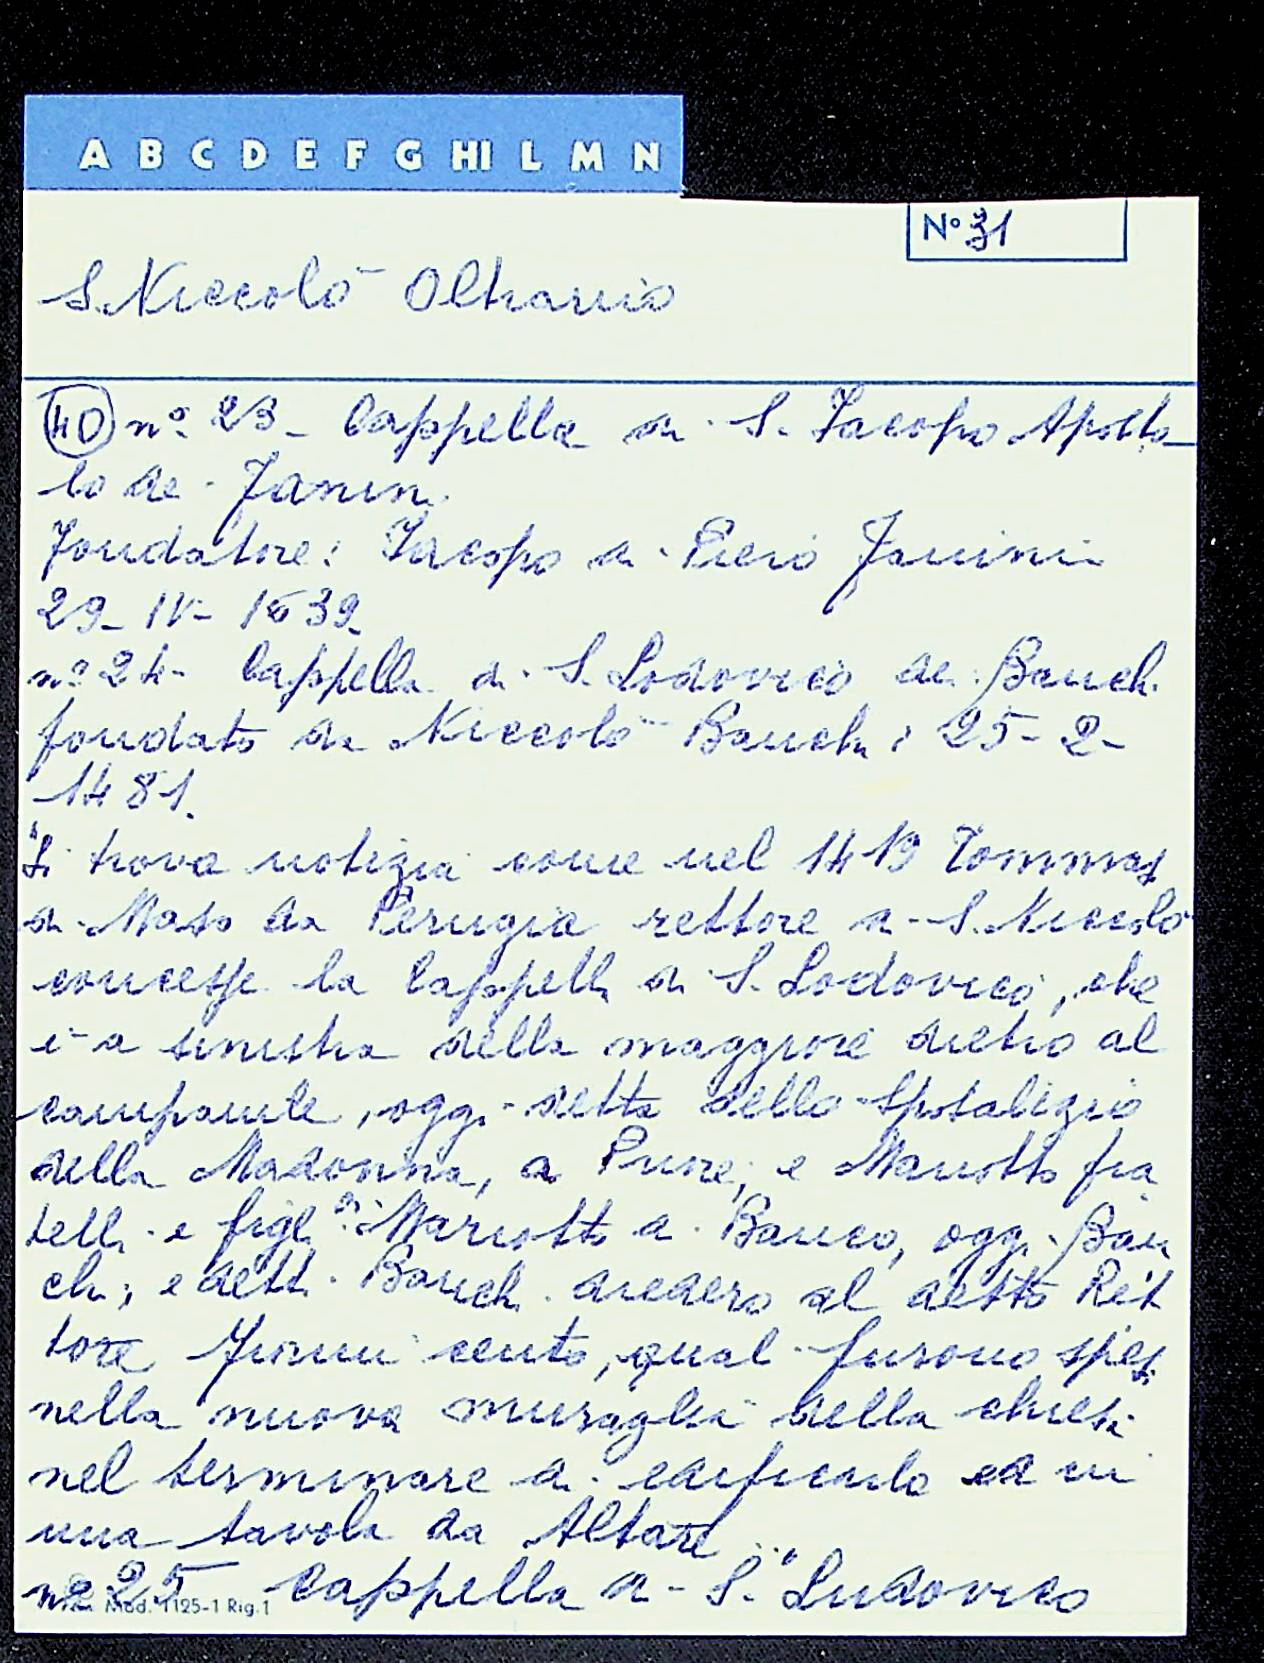 A B C D E F G HI L M N
N° 31
S. Niccolò Oltrarno
40 n° 23 - Cappella di S. Jacopo Aposto
lo de Fanini
Fondatore: Jacopo di Piero Fanini
29 - IV - 1639
n° 24 - Cappella di S. Lodovico dei Banchi
fondato da Niccolò Banchi: 25 - 2 -
1481.
"Si trova notizia come nel 1419 Tommaso
di Maso da Perugia rettore di S. Niccolò
concesse la Cappella di S. Lodovico, che
è a sinistra della maggiore dietro al
campanile, oggi detta dello Sposalizio
della Madonna, a e Mariotto fra
telli e figli di Mariotto di Banco, oggi Ban
chi; e detti Banchi diedero al detto Ret
tore fiorini cento, quali furono spesi
nella nuova muraglia della chiesa
nel terminare di edificarla ed in
una tavola da Altare..."
n° 25 Cappella di S. Ludovico
Mod. 1125-1 Rig. 1